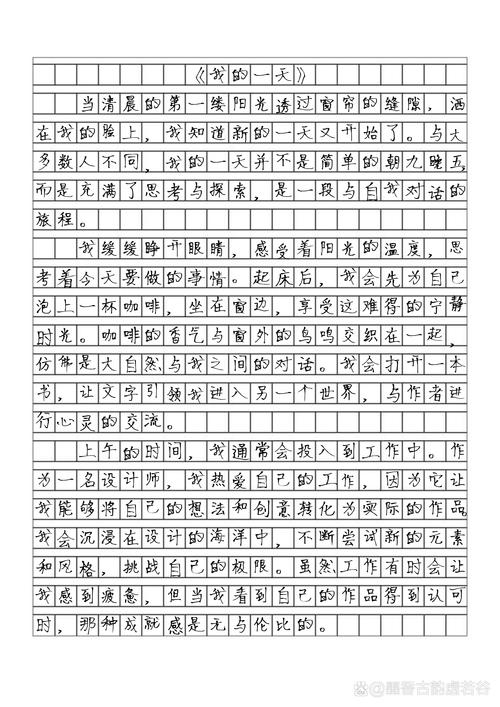 《我的一天》
当清晨的第一缕阳光透过窗帘的缝隙，洒
在我的脸上，我知道新的一天又开始了。与大
多数人不同，我的一天并不是简单的朝九晚五，
而是充满了思考与探索，是一段与自我对话的
旅程。
我缓缓睁开眼睛，感受着阳光的温度，思
考着今天要做的事情。起床后，我会先为自己
泡上一杯咖啡，坐在窗边，享受这难得的宁静
时光。咖啡的香气与窗外的鸟鸣交织在一起，
仿佛是大自然与我之间的对话。我会打开一本
书，让文字引领我进入另一个世界，与作者进
行心灵的交流。
上午的时间，我通常会投入到工作中。作
为一名设计师，我热爱自己的工作，因为它让
我能够将自己的想法和创意转化为实际的作品。
我会沉浸在设计的海洋中，不断尝试新的元素
和风格，挑战自己的极限。虽然工作有时会让
我感到疲惫，但当我看到自己的作品得到认可
时，那种成就感是无与伦比的。